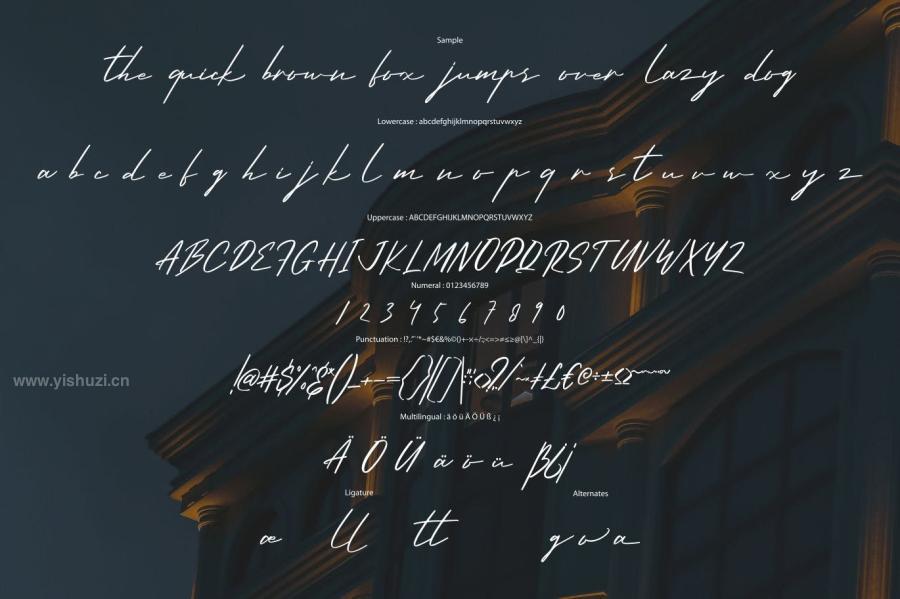 Sample
the quick brown fox jumps over lazy dog
Lowercase : abcdefghijklmnopqrstuvwxyz
a b c d e f g h i j k l m n o p q r s t u v w x y z
Uppercase : ABCDEFGHIJKLMNOPQRSTUVWXYZ
ABCDEFGHIJKLMNOPQRSTUVWXYZ
Numeral : 0123456789
1 2 3 4 5 6 7 8 9 0
Punctuation :
www.yishuzi.cn
Multilingual : ä ö ü Ä Ö Ü ß ¿ ¡
Ä Ö Ü ä ö ü ß¿¡
Ligature Alternates
æ ll tt g w a